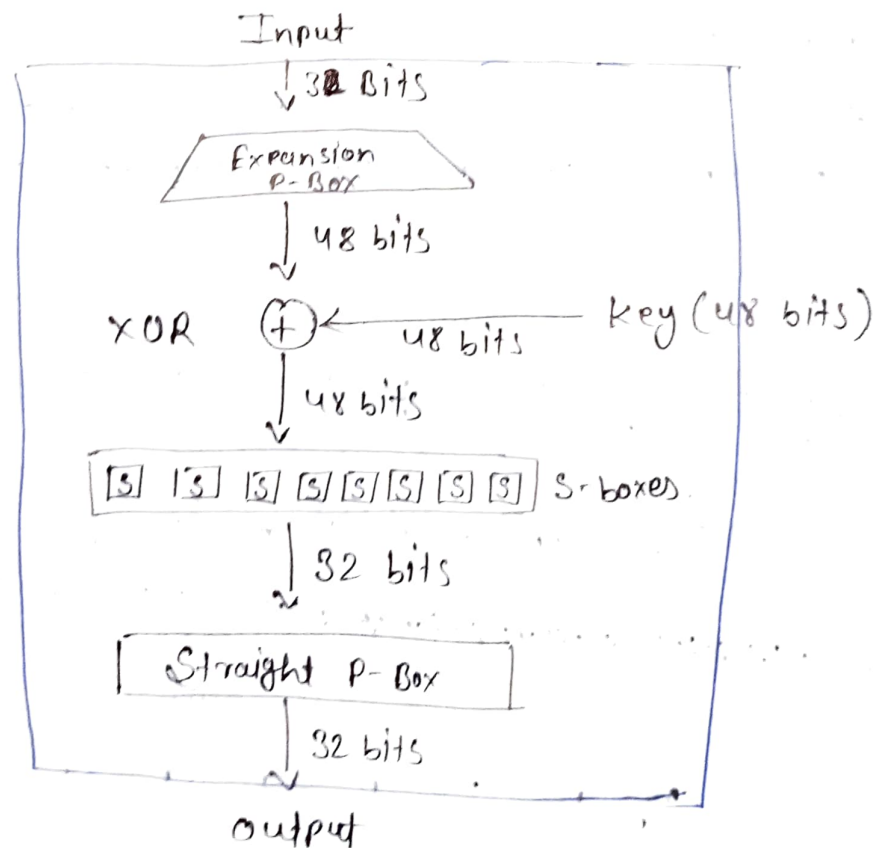 Input
32 Bits
Expansion
P-Box
48 bits
XOR + 48 bits key (48 bits)
48 bits
S S S S S S S S S-boxes
32 bits
Straight P-Box
32 bits
output